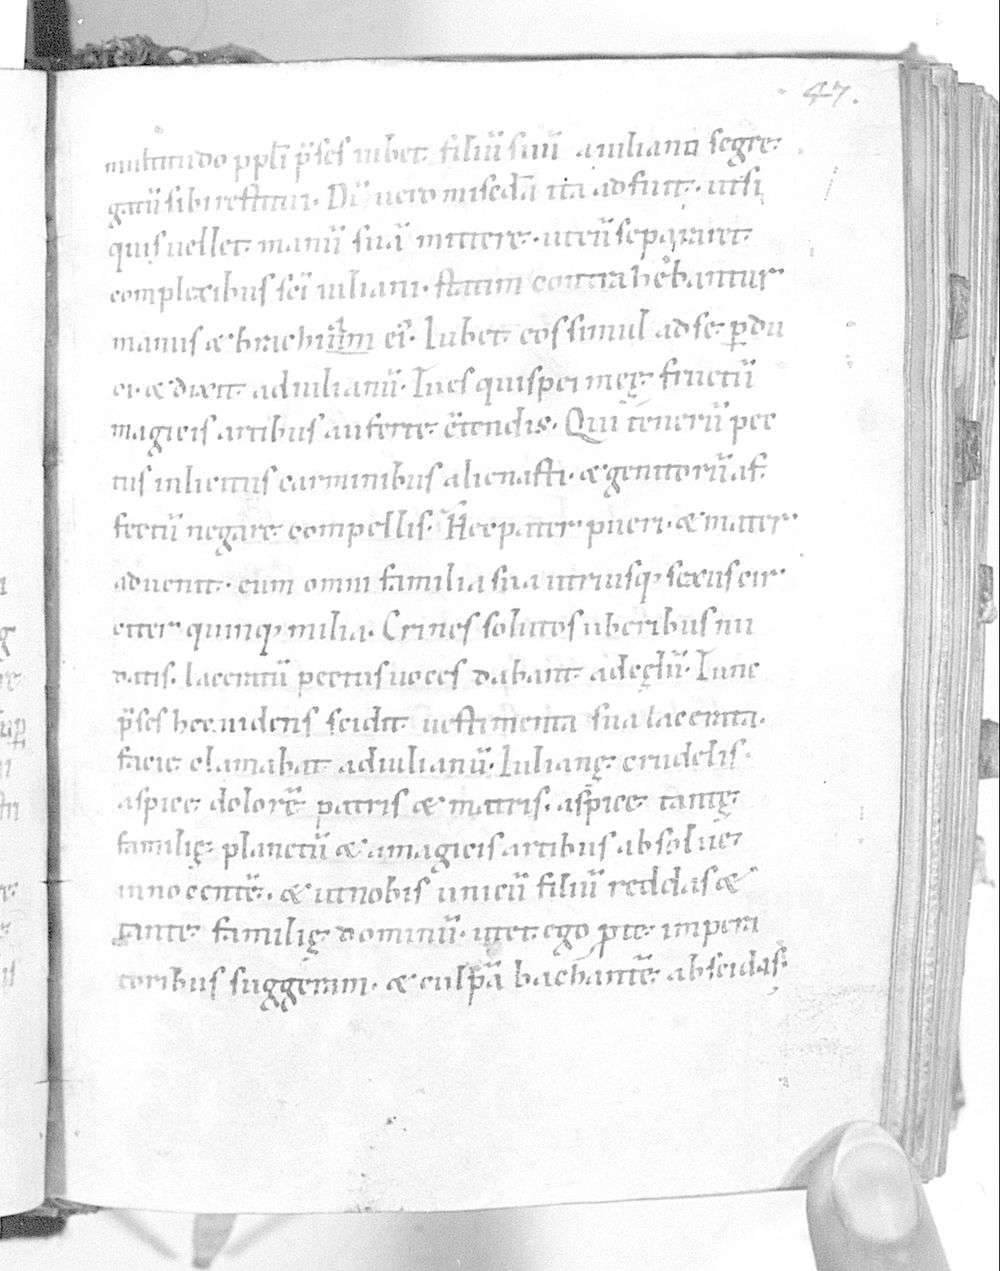 47.
multitudo ppłi p̄ses iubet filiū suū a iuliano segre
gatū sibi restitui. Dn̄s uero misedā ita adfuit. ut si
quis uellet manū suā mittere. ut eū separaret
complexibus sc̄i iuliani. statim contrahebantur
manus & brachium ei. Iubet eos simul ad se pdu
ci. & dixit ad iulianū. Tu es qui spei meę fructū
magicis artibus auferre c̄tendis. Qui tenerū pec
tus inlicitus carminibus alienasti. & genitorū af
fectū negare compellis. Hec pater pueri. & mater
aduenit. cum omni familia sua utriusq; sexus cir
citer quinq; milia. Crines solutos uberibus nu
datis. lacertū pectus uoces dabant ad cęlū. Tunc
p̄ses hec uidens scidit uestimenta sua lacerata.
facie clamabat ad iulianū. Iulianę crudelis.
aspice dolorē patris & matris. aspice tantę
familię planctū & a magicis artibus absolue
innocentē. & ut nobis unicū filiū reddas &
tante familię dominū. ut et ego p te impera
toribus suggeram. & culpā bachantē abscidas.